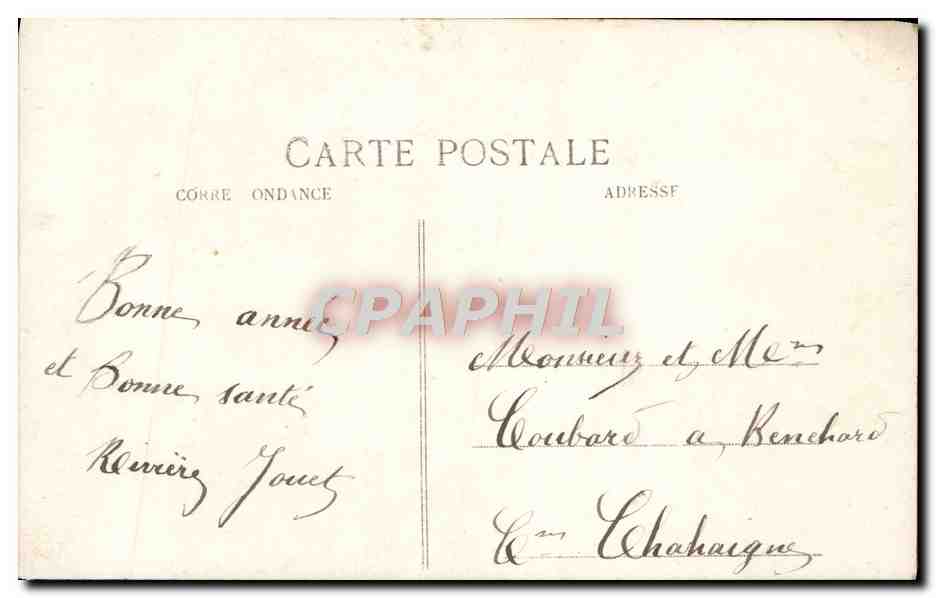 CARTE POSTALE
CORRE ONDANCE
ADRESSE
Bonne année
et Bonne santé
Rivière Jouet
CPAPHIL
Monsieur et Mme
Coubard a Benehard
Cne Chahaigne